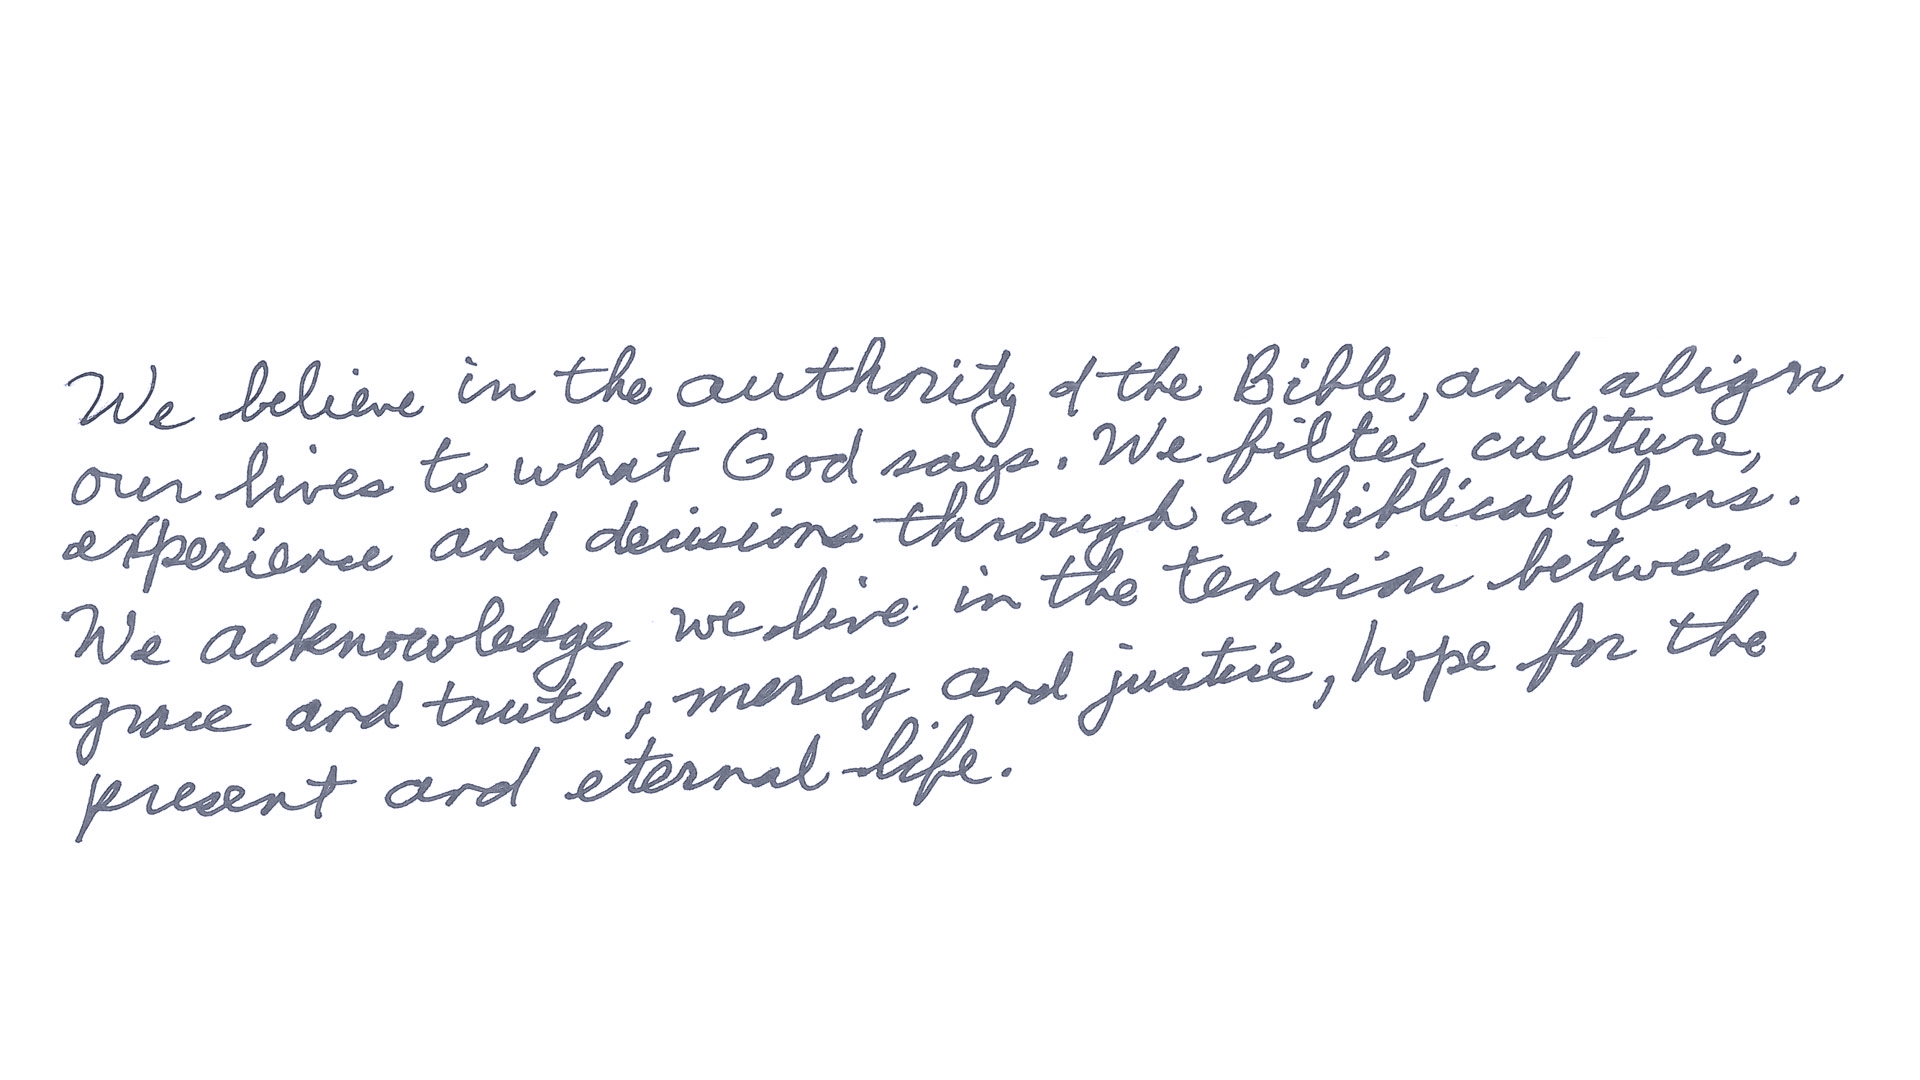 We believe in the authority of the Bible, and align
our lives to what God says. We filter culture,
experience and decisions through a Biblical lens.
We acknowledge we live in the tension between
grace and truth, mercy and justice, hope for the
present and eternal life.